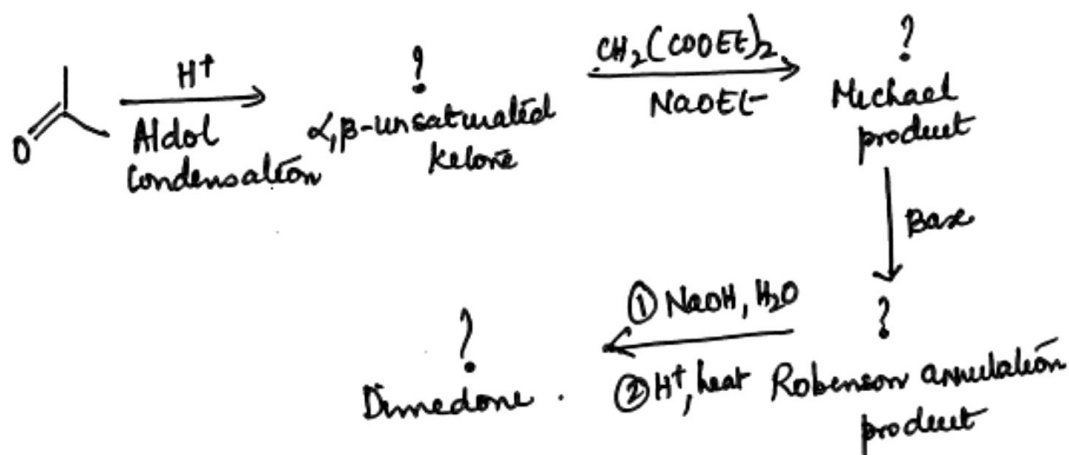 H⁺
O
Aldol
Condensation
?
α,β-unsaturated
ketone
CH₂(COOEt)₂
NaOEt
?
Michael
product
Base
?
Robenson annulation
product
① NaOH, H₂O
② H⁺, heat
?
Dimedone.